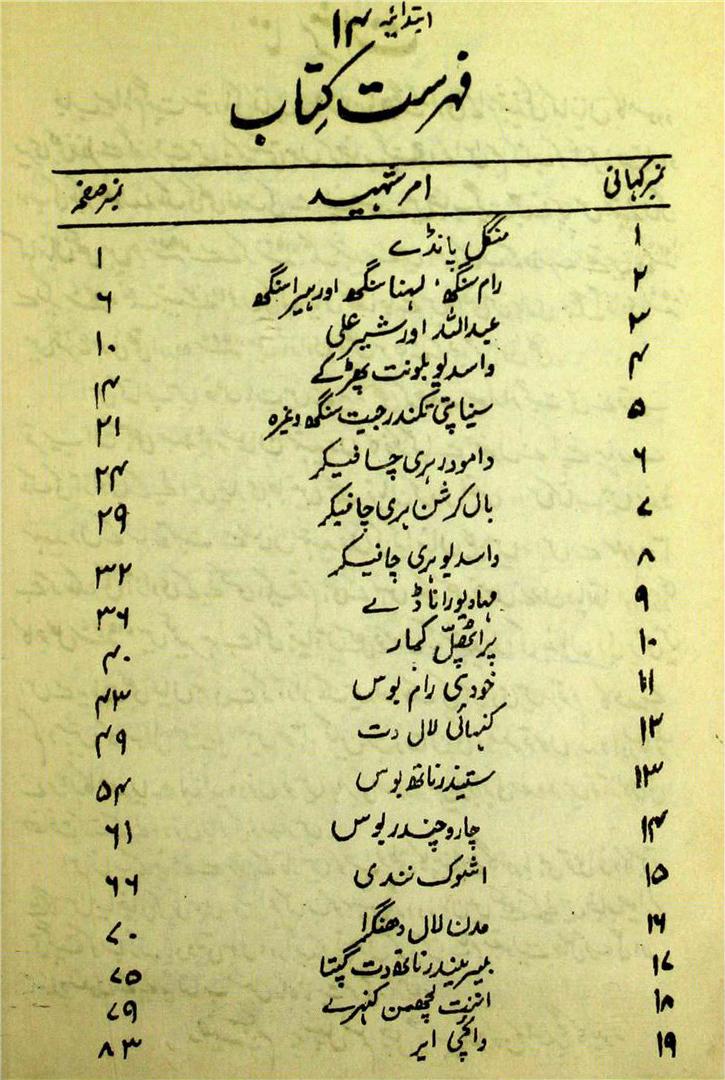 ابتدائیہ ۱۴
فہرست کتاب
نمبر کہانی امر شہید نمبر صفحہ
۱ منگل پانڈے ۱
۲ رام سنگھ، لہنا سنگھ اور ہیرا سنگھ ۶
۳ عبداللہ اور شیر علی ۱۰
۴ واسدیو بلونت پھڑکے ۱۴
۵ سیناپتی تکندرجیت سنگھ وغیرہ ۲۱
۶ دامودر ہری چافیکر ۲۴
۷ بال کرشن ہری چافیکر ۲۹
۸ واسدیو ہری چافیکر ۳۲
۹ مہادیو راناڈے ۳۶
۱۰ پرافلّ کمار ۴۰
۱۱ خودی رام بوس ۴۳
۱۲ کنہائی لال دت ۴۹
۱۳ ستیندر ناتھ بوس ۵۴
۱۴ چارو چندر بوس ۶۱
۱۵ اشوک نندی ۶۶
۱۶ مدن لال دھنگرا ۷۰
۱۷ بمیریندر ناتھ دت گپتا ۷۵
۱۸ اننت لچھمن کنہرے ۷۹
۱۹ وانچی ایر ۸۳